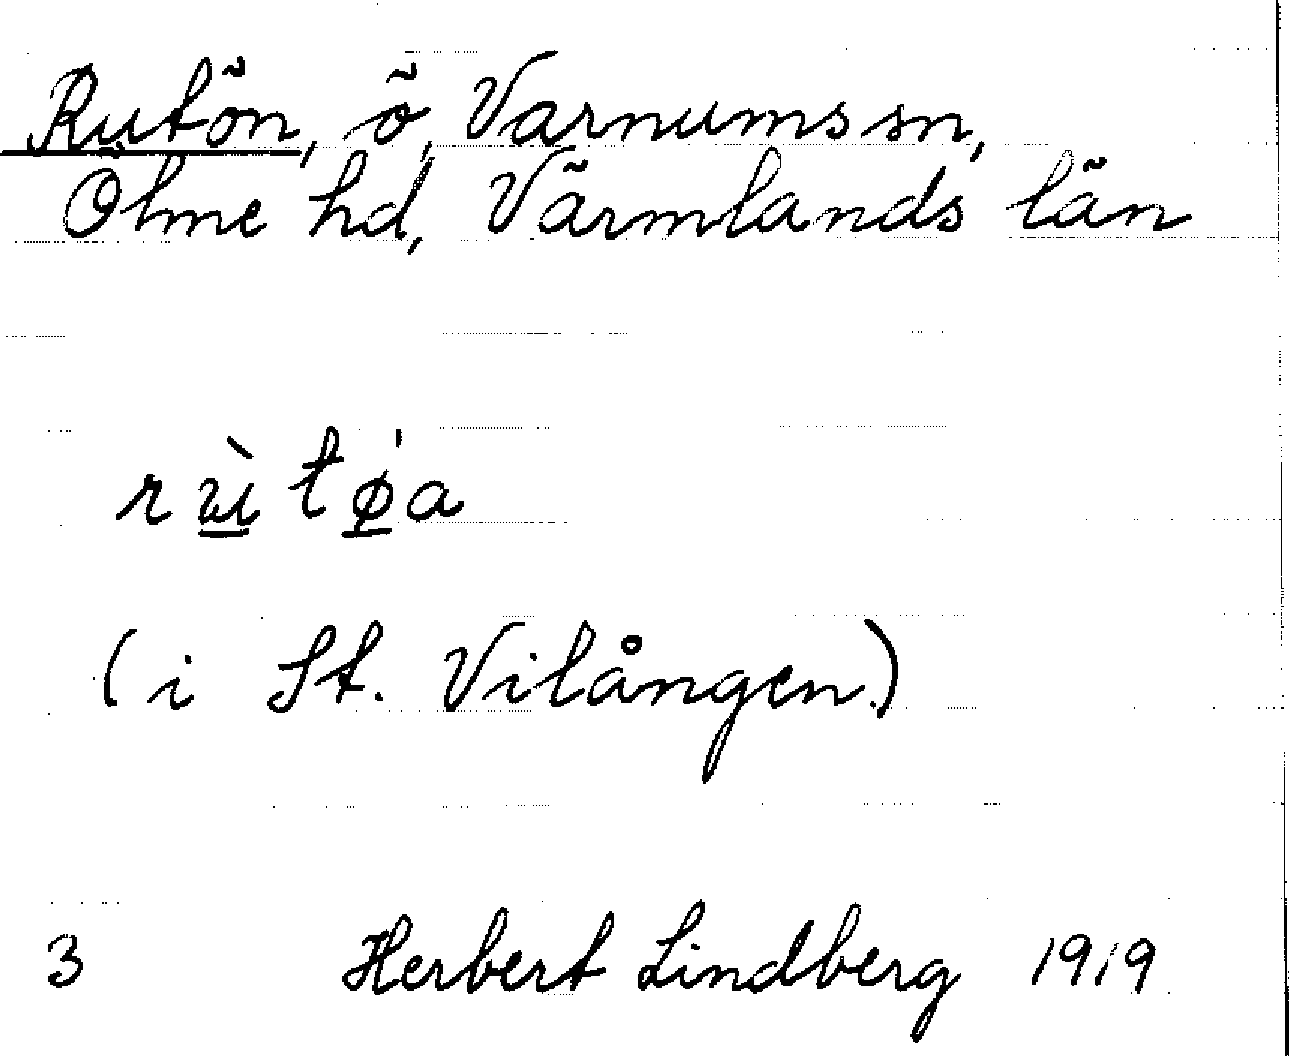 Rutön, ö, Varnums sn,
Ölme hd, Värmlands län
rùtǿa
(i St. Vilången.)
3 Herbert Lindberg 1919